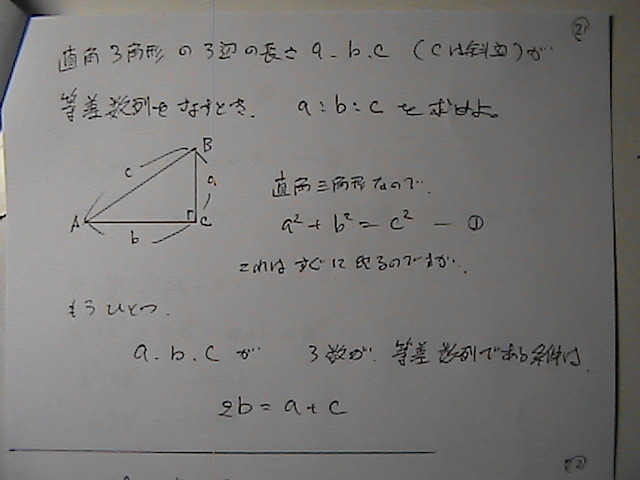 21
直角3角形の3辺の長さ a.b.c (cは斜辺)が
等差数列をなすとき. a:b:c を求めよ。
B
c
a
A
C
b
直角三角形なので.
a²+b²=c² ― ①
これはすぐに出るのですが.
もうひとつ.
a.b.c が 3数が. 等差数列である条件は.
2b=a+c
22